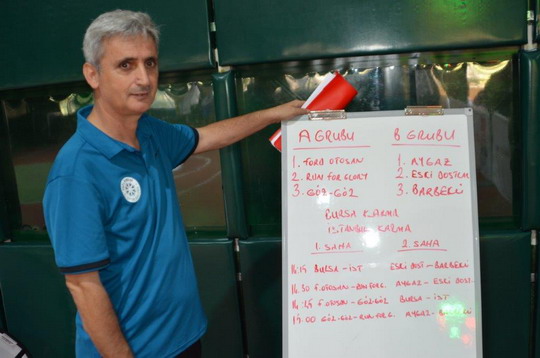 A GRUBU
B GRUBU
1. FORD OTOSAN
1. AYGAZ
2. RUN FOR GLORY
2. ESKİ DOSTLAR
3. GÖZ-GÖZ
3. BARBEKÜ
BURSA KARMA
İSTANBUL KARMA
1. SAHA
2. SAHA
14:15 BURSA - İST
ESKİ DOST - BARBEKÜ
14.30 F. OTOSAN - RUN FORG.
AYGAZ - ESKİ DOST.
14:45 F. OTOSAN - GÖZ GÖZ
BURSA - İST
15.00 GÖZ. GÖZ - RUN FORG.
AYGAZ - BARBEKÜ